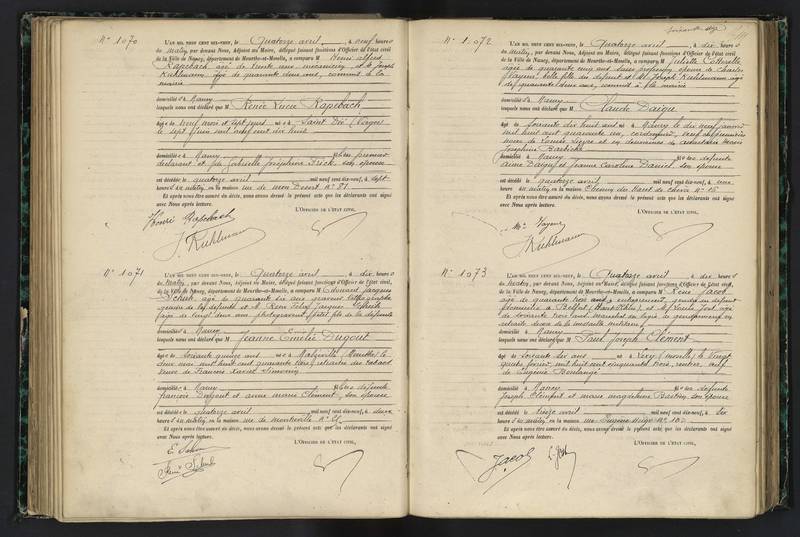 N° 1070
L'AN MIL NEUF CENT DIX-NEUF, le Quatorze avril, à neuf heures
du matin, par devant Nous, Adjoint au Maire, délégué faisant fonctions d'Officier de l'état civil
de la Ville de Nancy, département de Meurthe-et-Moselle, a comparu M Henri Alfred
Rapebach âgé de trente ans, mécanicien et M. Joseph
Kuhlmann âgé de quarante deux ans, commis à la
mairie
domicilié à Nancy
lesquels nous ont déclaré que M Renée Lucie Rapebach
âgé de neuf mois et sept jours né à Saint Dié (Vosges)
le sept juin mil neuf cent dix huit
domicilié à Nancy, fille du premier
déclarant et de Gabrielle Joséphine Frick, son épouse
est décédée le quatorze avril mil neuf cent dix-neuf, à sept
heures du matin, en la maison rue de mon Désert N° 81.
Et après nous être assuré du décès, nous avons dressé le présent acte que les déclarants ont signé
avec Nous après lecture.
L'OFFICIER DE L'ÉTAT CIVIL,
Henri Rapebach
J. Kuhlmann
N° 1071
L'AN MIL NEUF CENT DIX-NEUF, le Quatorze avril, à dix heures
du matin, par devant Nous, Adjoint au Maire, délégué faisant fonctions d'Officier de l'état civil
de la Ville de Nancy, département de Meurthe-et-Moselle, a comparu M Edouard Jacques
âgé de quarante six ans graveur lithographe
gendre de la défunte et M René Jacques
âgé de vingt deux ans, photograveur, petit fils de la défunte
domiciliés à Nancy
lesquels nous ont déclaré que M Jeanne Emélie Dugout
âgé de soixante quinze ans né à Malzéville (Meurthe) le
deux mai mil huit cent quarante trois, retraitée des tabacs
veuve de François Xavier Simonin
domiciliée à Nancy, fille des défunts
François Dugout et Anne Marie Clément, son épouse
est décédée le quatorze avril mil neuf cent dix-neuf, à deux
heures du matin, en la maison rue de
Et après nous être assuré du décès, nous avons dressé le présent acte que les déclarants ont signé
avec Nous après lecture.
L'OFFICIER DE L'ÉTAT CIVIL,
N° 1072
L'AN MIL NEUF CENT DIX-NEUF, le Quatorze avril, à dix heures
du matin, par devant Nous, Adjoint au Maire, délégué faisant fonctions d'Officier de l'état civil
de la Ville de Nancy, département de Meurthe-et-Moselle, a comparu M Juliette
âgée de quarante cinq ans, sans profession, veuve de Charles
Vayeur, belle fille du défunt et M. Joseph Kuhlmann âgé
de quarante deux ans, commis à la mairie
domicilié à Nancy
lesquels nous ont déclaré que M Claude Daigue
âgé de soixante dix huit ans né à Nancy le dix neuf janvier
mil huit cent quarante un, cordonnier, veuf en premières
noces de Louise et en deuxièmes de Marie
Joséphine
domicilié à Nancy, fils des défunts
Daigue et Jeanne Caroline Daniel, son épouse
est décédé le quatorze avril mil neuf cent dix-neuf, à une
heure du matin, en la maison Chemin du N° 15
Et après nous être assuré du décès, nous avons dressé le présent acte que les déclarants ont signé
avec Nous après lecture.
L'OFFICIER DE L'ÉTAT CIVIL,
Vayeur
J. Kuhlmann
N° 1073
L'AN MIL NEUF CENT DIX-NEUF, le Quatorze avril, à dix heures
du matin, par devant Nous, Adjoint au Maire, délégué faisant fonctions d'Officier de l'état civil,
de la Ville de Nancy, département de Meurthe-et-Moselle, a comparu M René Jacob
âgé de quarante trois ans, entrepreneur, gendre du défunt
domicilié à Belfort (Haut Rhin), et M âgé
de soixante trois ans, maréchal des logis de gendarmerie en
retraite décoré de la médaille militaire
domicilié à Nancy
lesquels nous ont déclaré que M Paul Joseph Clément
âgé de soixante six ans né à le vingt
février mil huit cent cinquante trois, rentier, veuf
de Eugénie Boulangé
domicilié à Nancy, fils des défunts
Joseph Clément et Marie Magdeleine son épouse
est décédé le treize avril mil neuf cent dix-neuf, à six
heures du matin, en la maison rue Eugène Hugo N° 10
Et après nous être assuré du décès, nous avons dressé le présent acte que les déclarants ont signé
avec Nous après lecture.
L'OFFICIER DE L'ÉTAT CIVIL,
Jacob